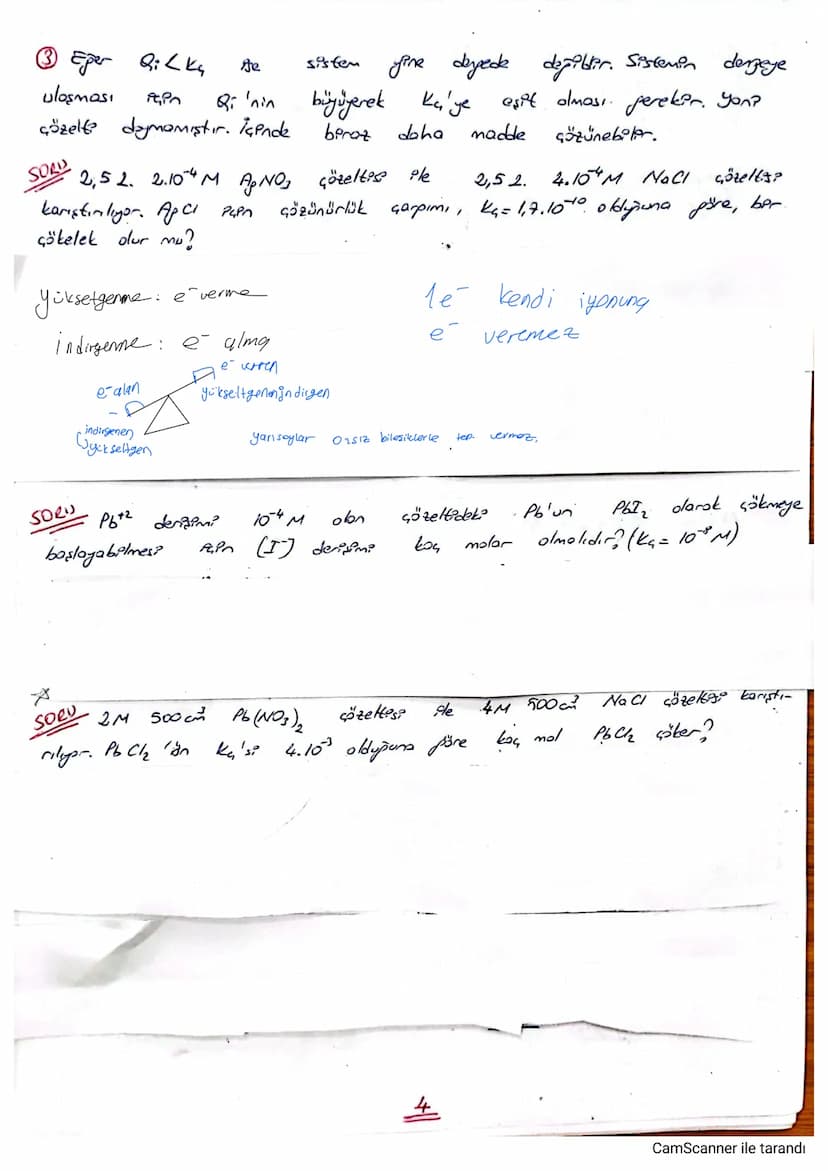 ③ Eğer Qi < Kç ise sistem yine dengede değildir. Sistemin dengeye
ulaşması için Qi'nin büyüyerek Kç'ye eşit olması gerekir. Yani
çözelti doymamıştır. İçinde biraz daha madde çözünebilir.
SORU 2,5 L. 2.10⁻⁴ M AgNO₃ çözeltisi ile 2,5 L. 4.10⁻⁴ M NaCl çözeltisi
karıştırılıyor. AgCl için çözünürlük çarpımı, Kç = 1,7.10⁻¹⁰ olduğuna göre, bir
çökelek olur mu?
yükseltgenme: e⁻ verme
1e⁻ kendi iyonuna
indirgenme: e⁻ alma
e⁻ veremez
e⁻ veren
e⁻ alan
yükseltgenen indirgen
indirgenen
yükseltgen
yarısoylar oksiz bileşiklerle tep. vermez.
SORU Pb⁺² derişimi 10⁻⁴ M olan çözeltideki Pb'un PbI₂ olarak çökmeye
başlayabilmesi için (I⁻) derişimi kaç molar olmalıdır? (Kç = 10⁻⁸ M)
SORU 2M 500 cm³ Pb(NO₃)₂ çözeltisi ile 4M 500 cm³ NaCl çözeltisi karıştı-
rılıyor. PbCl₂'ün Kç'si 4.10⁻³ olduğuna göre kaç mol PbCl₂ çöker?
4
CamScanner ile tarandı